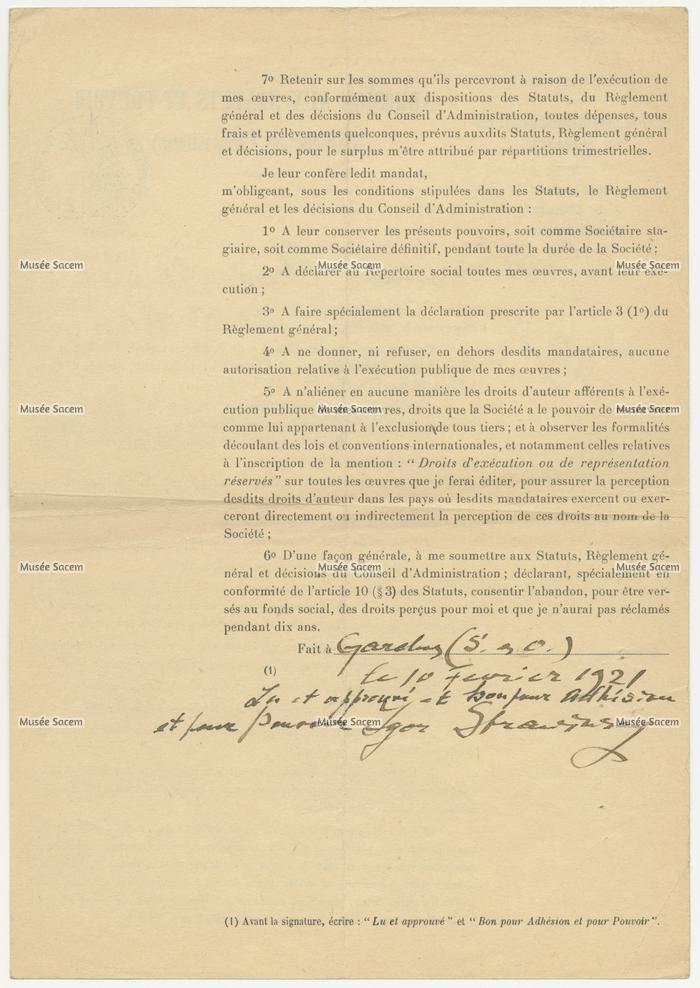 7º Retenir sur les sommes qu'ils percevront à raison de l'exécution de
mes œuvres, conformément aux dispositions des Statuts, du Règlement
général et des décisions du Conseil d'Administration, toutes dépenses, tous
frais et prélèvements quelconques, prévus auxdits Statuts, Règlement général
et décisions, pour le surplus m'être attribué par répartitions trimestrielles.
Je leur confère ledit mandat,
m'obligeant, sous les conditions stipulées dans les Statuts, le Règlement
général et les décisions du Conseil d'Administration :
1º A leur conserver les présents pouvoirs, soit comme Sociétaire sta-
giaire, soit comme Sociétaire définitif, pendant toute la durée de la Société ;
Musée Sacem Musée Sacem Musée Sacem
2º A déclarer au Répertoire social toutes mes œuvres, avant leur exé-
cution ;
3º A faire spécialement la déclaration prescrite par l'article 3 (1º) du
Règlement général ;
4º A ne donner, ni refuser, en dehors desdits mandataires, aucune
autorisation relative à l'exécution publique de mes œuvres ;
5º A n'aliéner en aucune manière les droits d'auteur afférents à l'exé-
Musée Sacem Musée Sacem Musée Sacem
cution publique de mes œuvres, droits que la Société a le pouvoir de
comme lui appartenant à l'exclusion de tous tiers ; et à observer les formalités
découlant des lois et conventions internationales, et notamment celles relatives
à l'inscription de la mention : “ Droits d'exécution ou de représentation
réservés ” sur toutes les œuvres que je ferai éditer, pour assurer la perception
desdits droits d'auteur dans les pays où lesdits mandataires exercent ou exer-
ceront directement ou indirectement la perception de ces droits au nom de la
Société ;
6º D'une façon générale, à me soumettre aux Statuts, Règlement gé-
Musée Sacem Musée Sacem Musée Sacem
néral et décisions du Conseil d'Administration ; déclarant, spécialement en
conformité de l'article 10 (§ 3) des Statuts, consentir l'abandon, pour être ver-
sés au fonds social, des droits perçus pour moi et que je n'aurai pas réclamés
pendant dix ans.
Fait à Garches (S. et O.)
(1) le 10 Fevrier 1921
Lu et approuvé et bon pour Adhésion
Musée Sacem Musée Sacem Musée Sacem
et pour Pouvoir Igor Strawinsky
(1) Avant la signature, écrire : “ Lu et approuvé ” et “ Bon pour Adhésion et pour Pouvoir ”.